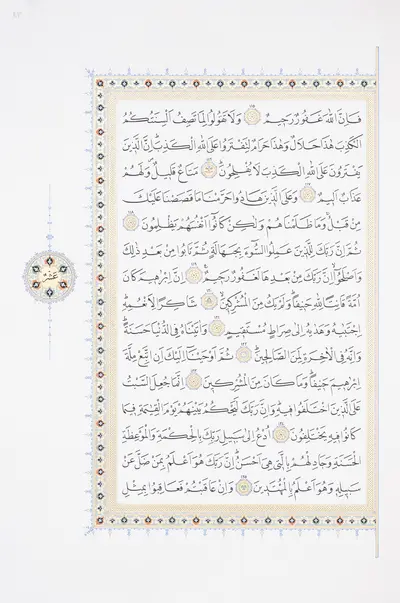 فَإِنَّ اللَّهَ غَفُورٌ رَحِيمٌ وَلَا تَقُولُوا لِمَا تَصِفُ أَلْسِنَتُكُمُ
الْكَذِبَ هَذَا حَلَالٌ وَهَذَا حَرَامٌ لِتَفْتَرُوا عَلَى اللَّهِ الْكَذِبَ إِنَّ الَّذِينَ
يَفْتَرُونَ عَلَى اللَّهِ الْكَذِبَ لَا يُفْلِحُونَ مَتَاعٌ قَلِيلٌ وَلَهُمْ
عَذَابٌ أَلِيمٌ وَعَلَى الَّذِينَ هَادُوا حَرَّمْنَا مَا قَصَصْنَا عَلَيْكَ
مِنْ قَبْلُ وَمَا ظَلَمْنَاهُمْ وَلَكِنْ كَانُوا أَنْفُسَهُمْ يَظْلِمُونَ
ثُمَّ إِنَّ رَبَّكَ لِلَّذِينَ عَمِلُوا السُّوءَ بِجَهَالَةٍ ثُمَّ تَابُوا مِنْ بَعْدِ ذَلِكَ
وَأَصْلَحُوا إِنَّ رَبَّكَ مِنْ بَعْدِهَا لَغَفُورٌ رَحِيمٌ إِنَّ إِبْرَاهِيمَ كَانَ
أُمَّةً قَانِتًا لِلَّهِ حَنِيفًا وَلَمْ يَكُ مِنَ الْمُشْرِكِينَ شَاكِرًا لِأَنْعُمِهِ
اجْتَبَاهُ وَهَدَاهُ إِلَى صِرَاطٍ مُسْتَقِيمٍ وَآتَيْنَاهُ فِي الدُّنْيَا حَسَنَةً
وَإِنَّهُ فِي الْآخِرَةِ لَمِنَ الصَّالِحِينَ ثُمَّ أَوْحَيْنَا إِلَيْكَ أَنِ اتَّبِعْ مِلَّةَ
إِبْرَاهِيمَ حَنِيفًا وَمَا كَانَ مِنَ الْمُشْرِكِينَ إِنَّمَا جُعِلَ السَّبْتُ
عَلَى الَّذِينَ اخْتَلَفُوا فِيهِ وَإِنَّ رَبَّكَ لَيَحْكُمُ بَيْنَهُمْ يَوْمَ الْقِيَامَةِ فِيمَا
كَانُوا فِيهِ يَخْتَلِفُونَ ادْعُ إِلَى سَبِيلِ رَبِّكَ بِالْحِكْمَةِ وَالْمَوْعِظَةِ
الْحَسَنَةِ وَجَادِلْهُمْ بِالَّتِي هِيَ أَحْسَنُ إِنَّ رَبَّكَ هُوَ أَعْلَمُ بِمَنْ ضَلَّ عَنْ
سَبِيلِهِ وَهُوَ أَعْلَمُ بِالْمُهْتَدِينَ وَإِنْ عَاقَبْتُمْ فَعَاقِبُوا بِمِثْلِ